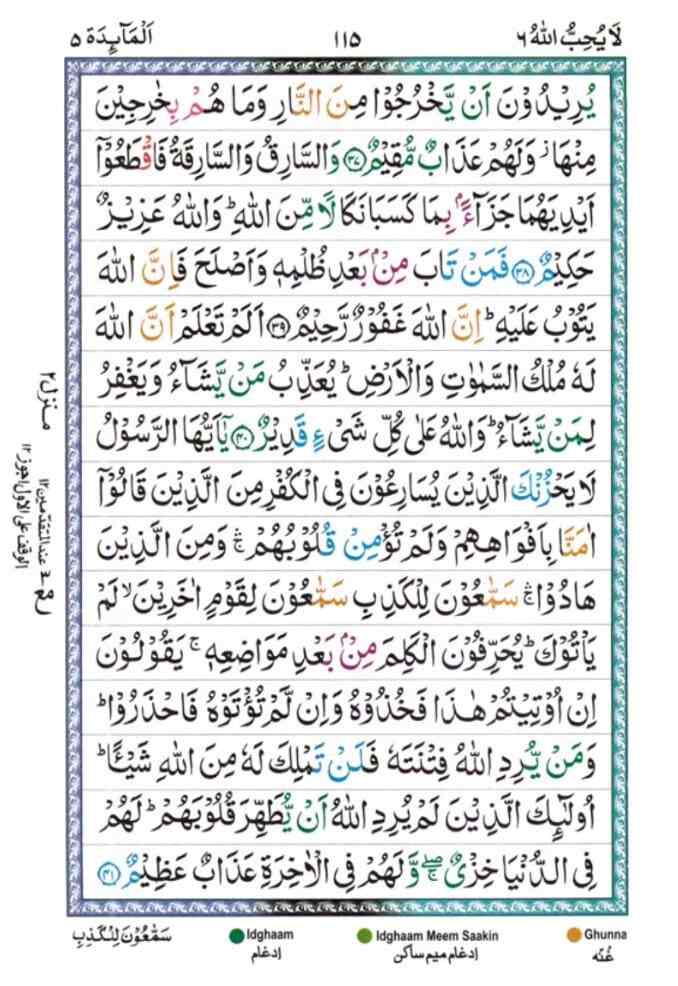 لَا يُحِبُّ اللهُ ٦ ١١٥ اَلْمَآئِدَة ٥
يُرِيْدُوْنَ اَنْ يَّخْرُجُوْا مِنَ النَّارِ وَمَا هُمْ بِخٰرِجِيْنَ
مِنْهَا ۫ وَلَهُمْ عَذَابٌ مُّقِيْمٌ ۝٣٧ وَالسَّارِقُ وَالسَّارِقَةُ فَاقْطَعُوْۤا
اَيْدِيَهُمَا جَزَآءًۢ بِمَا كَسَبَا نَكَالًا مِّنَ اللهِ ؕ وَاللهُ عَزِيْزٌ
حَكِيْمٌ ۝٣٨ فَمَنْ تَابَ مِنْۢ بَعْدِ ظُلْمِهٖ وَاَصْلَحَ فَاِنَّ اللهَ
يَتُوْبُ عَلَيْهِ ؕ اِنَّ اللهَ غَفُوْرٌ رَّحِيْمٌ ۝٣٩ اَلَمْ تَعْلَمْ اَنَّ اللهَ
لَهٗ مُلْكُ السَّمٰوٰتِ وَالْاَرْضِ ؕ يُعَذِّبُ مَنْ يَّشَآءُ وَيَغْفِرُ
لِمَنْ يَّشَآءُ ؕ وَاللهُ عَلٰى كُلِّ شَیْءٍ قَدِيْرٌ ۝٤٠ يٰۤاَيُّهَا الرَّسُوْلُ
لَا يَحْزُنْكَ الَّذِيْنَ يُسَارِعُوْنَ فِى الْكُفْرِ مِنَ الَّذِيْنَ قَالُوْۤا
اٰمَنَّا بِاَفْوَاهِهِمْ وَلَمْ تُؤْمِنْ قُلُوْبُهُمْ ۛۚ وَمِنَ الَّذِيْنَ
هَادُوْا ۛۚ سَمّٰعُوْنَ لِلْكَذِبِ سَمّٰعُوْنَ لِقَوْمٍ اٰخَرِيْنَ ۙ لَمْ
يَاْتُوْكَ ؕ يُحَرِّفُوْنَ الْكَلِمَ مِنْۢ بَعْدِ مَوَاضِعِهٖ ۚ يَقُوْلُوْنَ
اِنْ اُوْتِيْتُمْ هٰذَا فَخُذُوْهُ وَاِنْ لَّمْ تُؤْتَوْهُ فَاحْذَرُوْا ؕ
وَمَنْ يُّرِدِ اللهُ فِتْنَتَهٗ فَلَنْ تَمْلِكَ لَهٗ مِنَ اللهِ شَيْئًا ؕ
اُولٰٓئِكَ الَّذِيْنَ لَمْ يُرِدِ اللهُ اَنْ يُّطَهِّرَ قُلُوْبَهُمْ ؕ لَهُمْ
فِى الدُّنْيَا خِزْىٌ ۖۚ وَّلَهُمْ فِى الْاٰخِرَةِ عَذَابٌ عَظِيْمٌ ۝٤١
منزل ٢
عند المتقدمين ١٢
الوقف على الاول اجوز ١٢
سَمّٰعُوْنَ لِلْكَذِبِ
Idghaam
ادغام
Idghaam Meem Saakin
ادغام میم ساکن
Ghunna
غُنّه